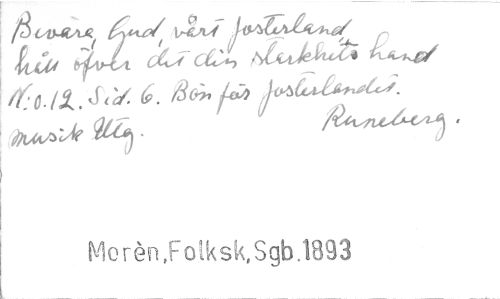 Bevara, Gud, vårt fosterland,
håll öfver det din starkhets hand
N:o.12. Sid. 6. Bön för fosterlandet.
musik Utg. Runeberg.
Morèn,Folksk,Sgb.1893